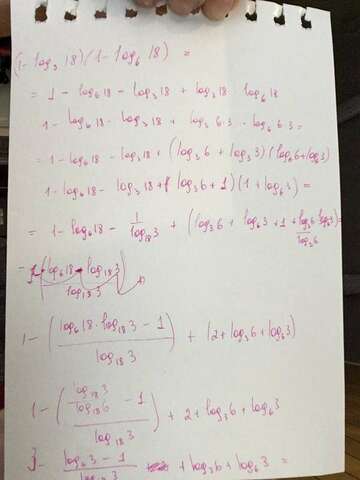 (1 - log₃ 18)(1 - log₆ 18) =
= 1 - log₆18 - log₃18 + log₃18 · log₆18
1 - log₆18 - log₃18 + log₃6·3 · log₆6·3 =
= 1 - log₆18 - log₃18 + (log₃6 + log₃3)(log₆6 + log₆3)
1 - log₆18 - log₃18 + (log₃6 + 1)(1 + log₆3) =
= 1 - log₆18 - 1/log₁₈3 + (log₃6 + log₆3 + 1 + log₃6 · log₆3) =
log₃6
log₆18 log₁₈3
log₁₈3
1 - ((log₆18 · log₁₈3 - 1)/log₁₈3) + (2 + log₃6 + log₆3)
1 - ((log₁₈3/log₁₈6 - 1)/log₁₈3) + 2 + log₃6 + log₆3
3 - (log₆3 - 1)/log₁₈3 + log₃6 + log₆3 =